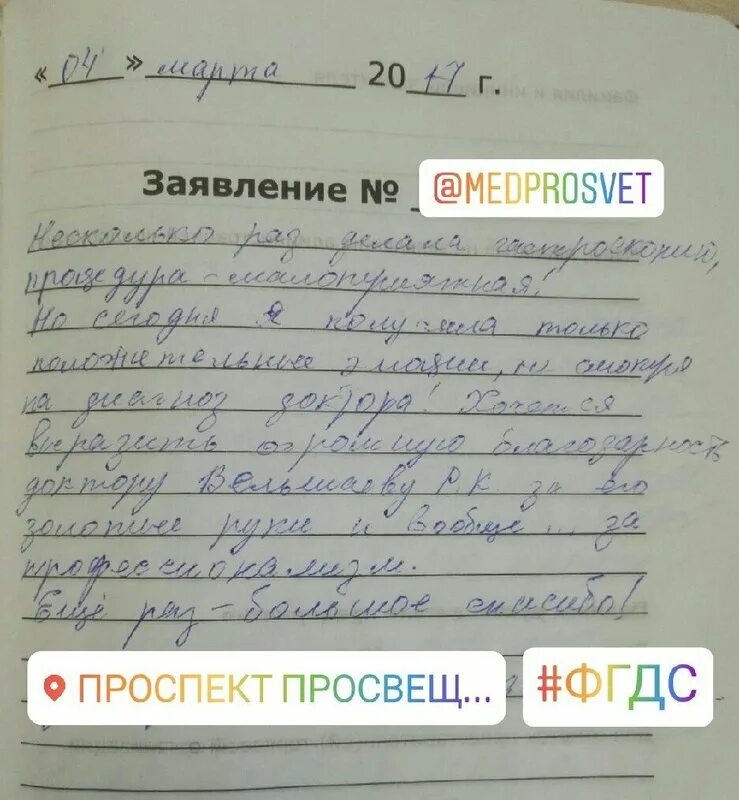 « 04 » марта 2017 г.
Заявление № @MEDPROSVET
Несколько раз делала гастроскопию,
процедура - малоприятная!
Но сегодня я получила только
положительные эмоции, не смотря
на диагноз доктора! Хочется
выразить огромную благодарность
доктору Р.К. за его
золотые руки и вообще... за
профессионализм.
Ещё раз - большое спасибо!
ПРОСПЕКТ ПРОСВЕЩ...
#ФГДС